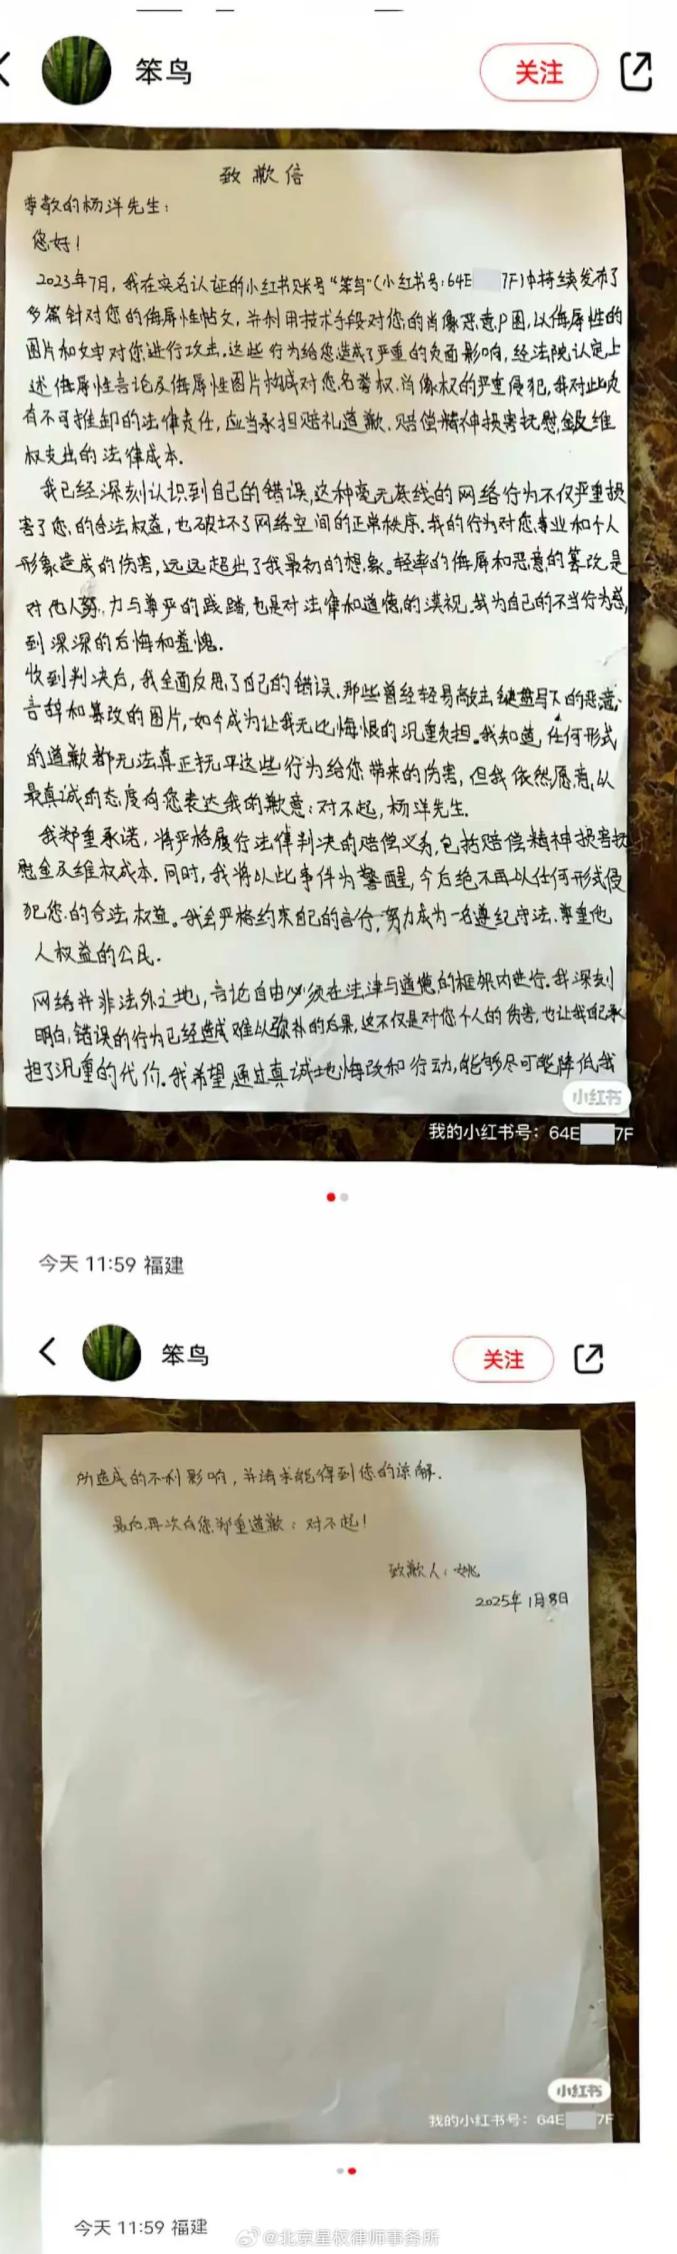 笨鸟
关注
致歉信
尊敬的杨洋先生：
您好！
2023年7月，我在实名认证的小红书账号"笨鸟"(小红书号：64E 7F)中持续发布了
多篇针对您的侮辱性帖文，并利用技术手段对您的肖像恶意P图，以侮辱性的
图片和文字对您进行攻击。这些行为给您造成了严重的负面影响，经法院认定上
述侮辱性言论及侮辱性图片构成对您名誉权、肖像权的严重侵犯，我对此负
有不可推卸的法律责任，应当承担赔礼道歉、赔偿精神损害抚慰金及维
权支出的法律成本.
我已经深刻认识到自己的错误，这种毫无底线的网络行为不仅严重损
害了您的合法权益，也破坏了网络空间的正常秩序。我的行为对您事业和个人
形象造成的伤害，远远超出了我最初的想象。轻率的侮辱和恶意的篡改是
对他人努力与尊严的践踏，也是对法律和道德的漠视。我为自己的不当行为感
到深深的后悔和羞愧.
收到判决后，我全面反思了自己的错误、那些曾经轻易敲击键盘写下的恶意
言辞和篡改的图片，如今成为让我无比悔恨的沉重负担。我知道，任何形式
的道歉都无法真正抚平这些行为给您带来的伤害，但我依然愿意，以
最真诚的态度向您表达我的歉意：对不起，杨洋先生.
我郑重承诺，将严格履行法律判决的赔偿义务，包括赔偿精神损害抚
慰金及维权成本.同时，我将以此事件为警醒，今后绝不再以任何形式侵
犯您的合法权益。我会严格约束自己的言行，努力成为一名遵纪守法、尊重他
人权益的公民.
网络并非法外之地，言论自由必须在法律与道德的框架内进行。我深刻
明白，错误的行为已经造成难以弥补的后果，这不仅是对您个人的伤害，也让我自己承
担了沉重的代价。我希望，通过真诚地悔改和行动，能够尽可能降低我
小红书
我的小红书号：64E 7F
今天 11:59 福建
笨鸟
关注
所造成的不利影响，并请求能得到您的谅解.
最后，再次向您郑重道歉：对不起！
致歉人：姚
2025年1月8日
小红书
我的小红书号：64E 7F
今天 11:59 福建
@北京星权律师事务所